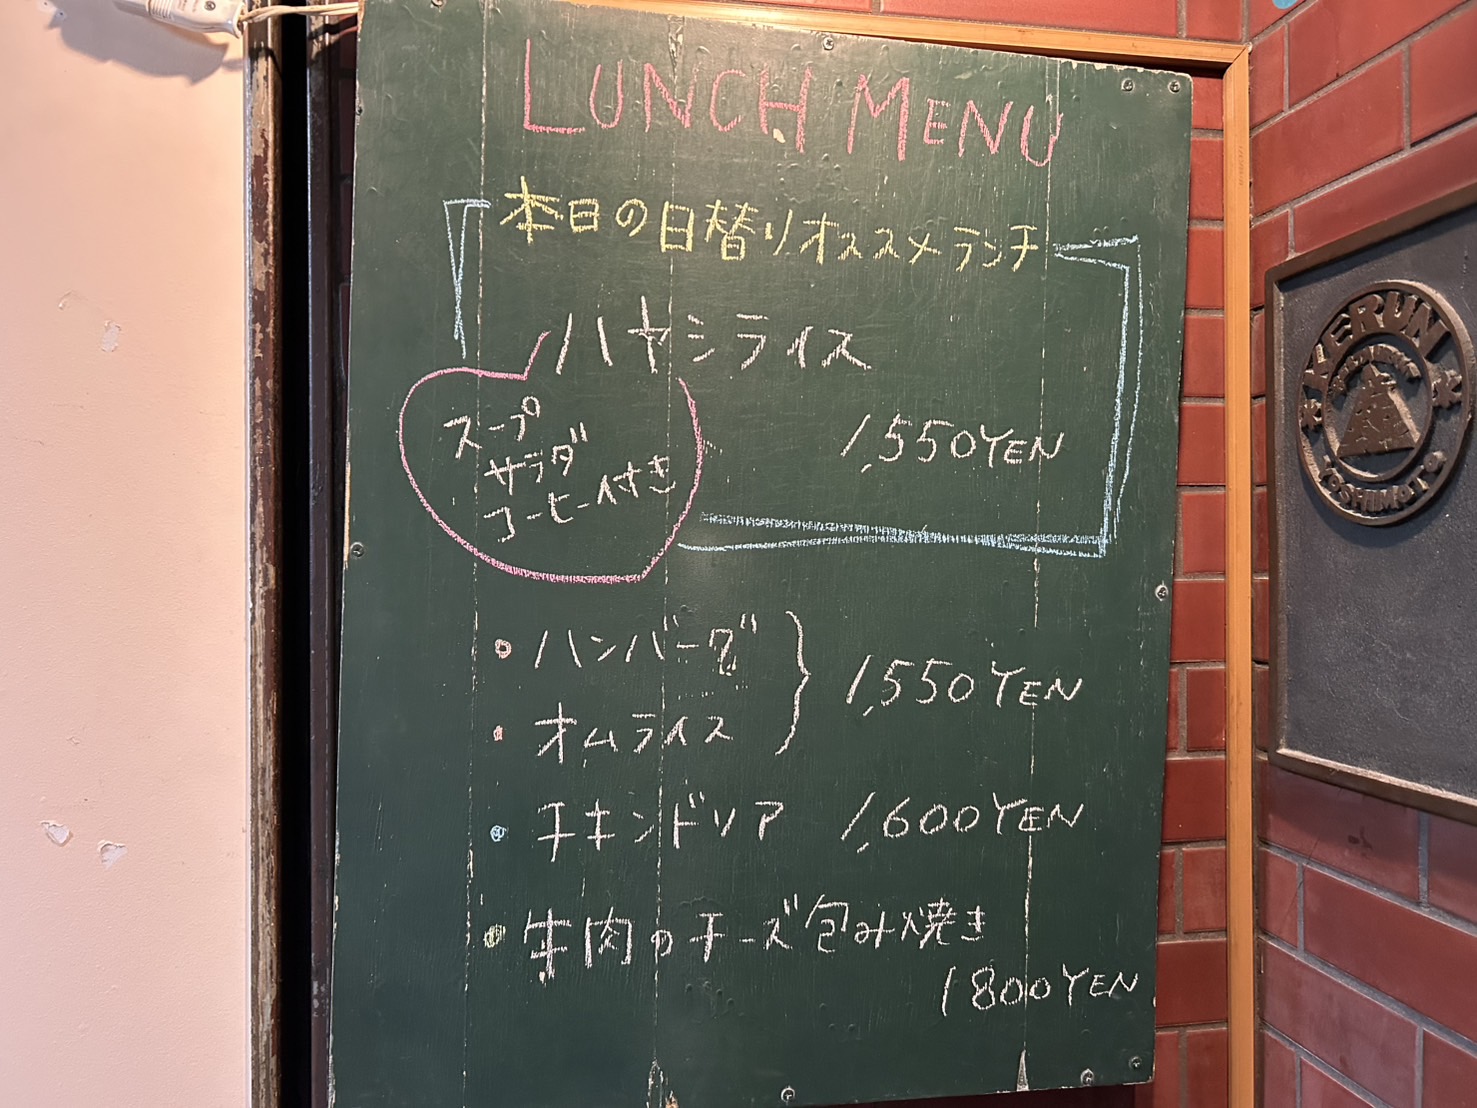 LUNCH MENU
本日の日替りオススメランチ
ハヤシライス
スープ
サラダ
コーヒー付き
1,550YEN
・ハンバーグ
・オムライス
1,550YEN
・チキンドリア 1,600YEN
・牛肉のチーズ包み焼き
1800YEN
KERUN
YOSHIMOTO